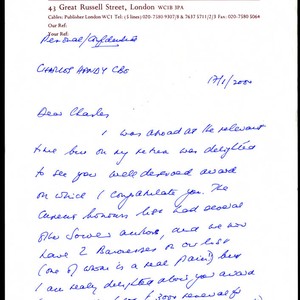 43 Great Russell Street, London WC1B 3PA
Cables: Publisher London WC1 Tel: (5 lines) 020-7580 9307/8 & 7637 5711/2/3 Fax: 020-7580 5064
Our Ref:
Your Ref:
Personal/Confidential
CHARLES HANDY CBE
17/1/2000
Dear Charles
I was abroad at the relevant
time but on my return was delighted
to see you well deserved award
on which I congratulate you. The
current honours list had several
other Souvenir authors, and we now
have 2 Baronesses on our list
(one of whom is a real pain) but
I am really delighted about your award